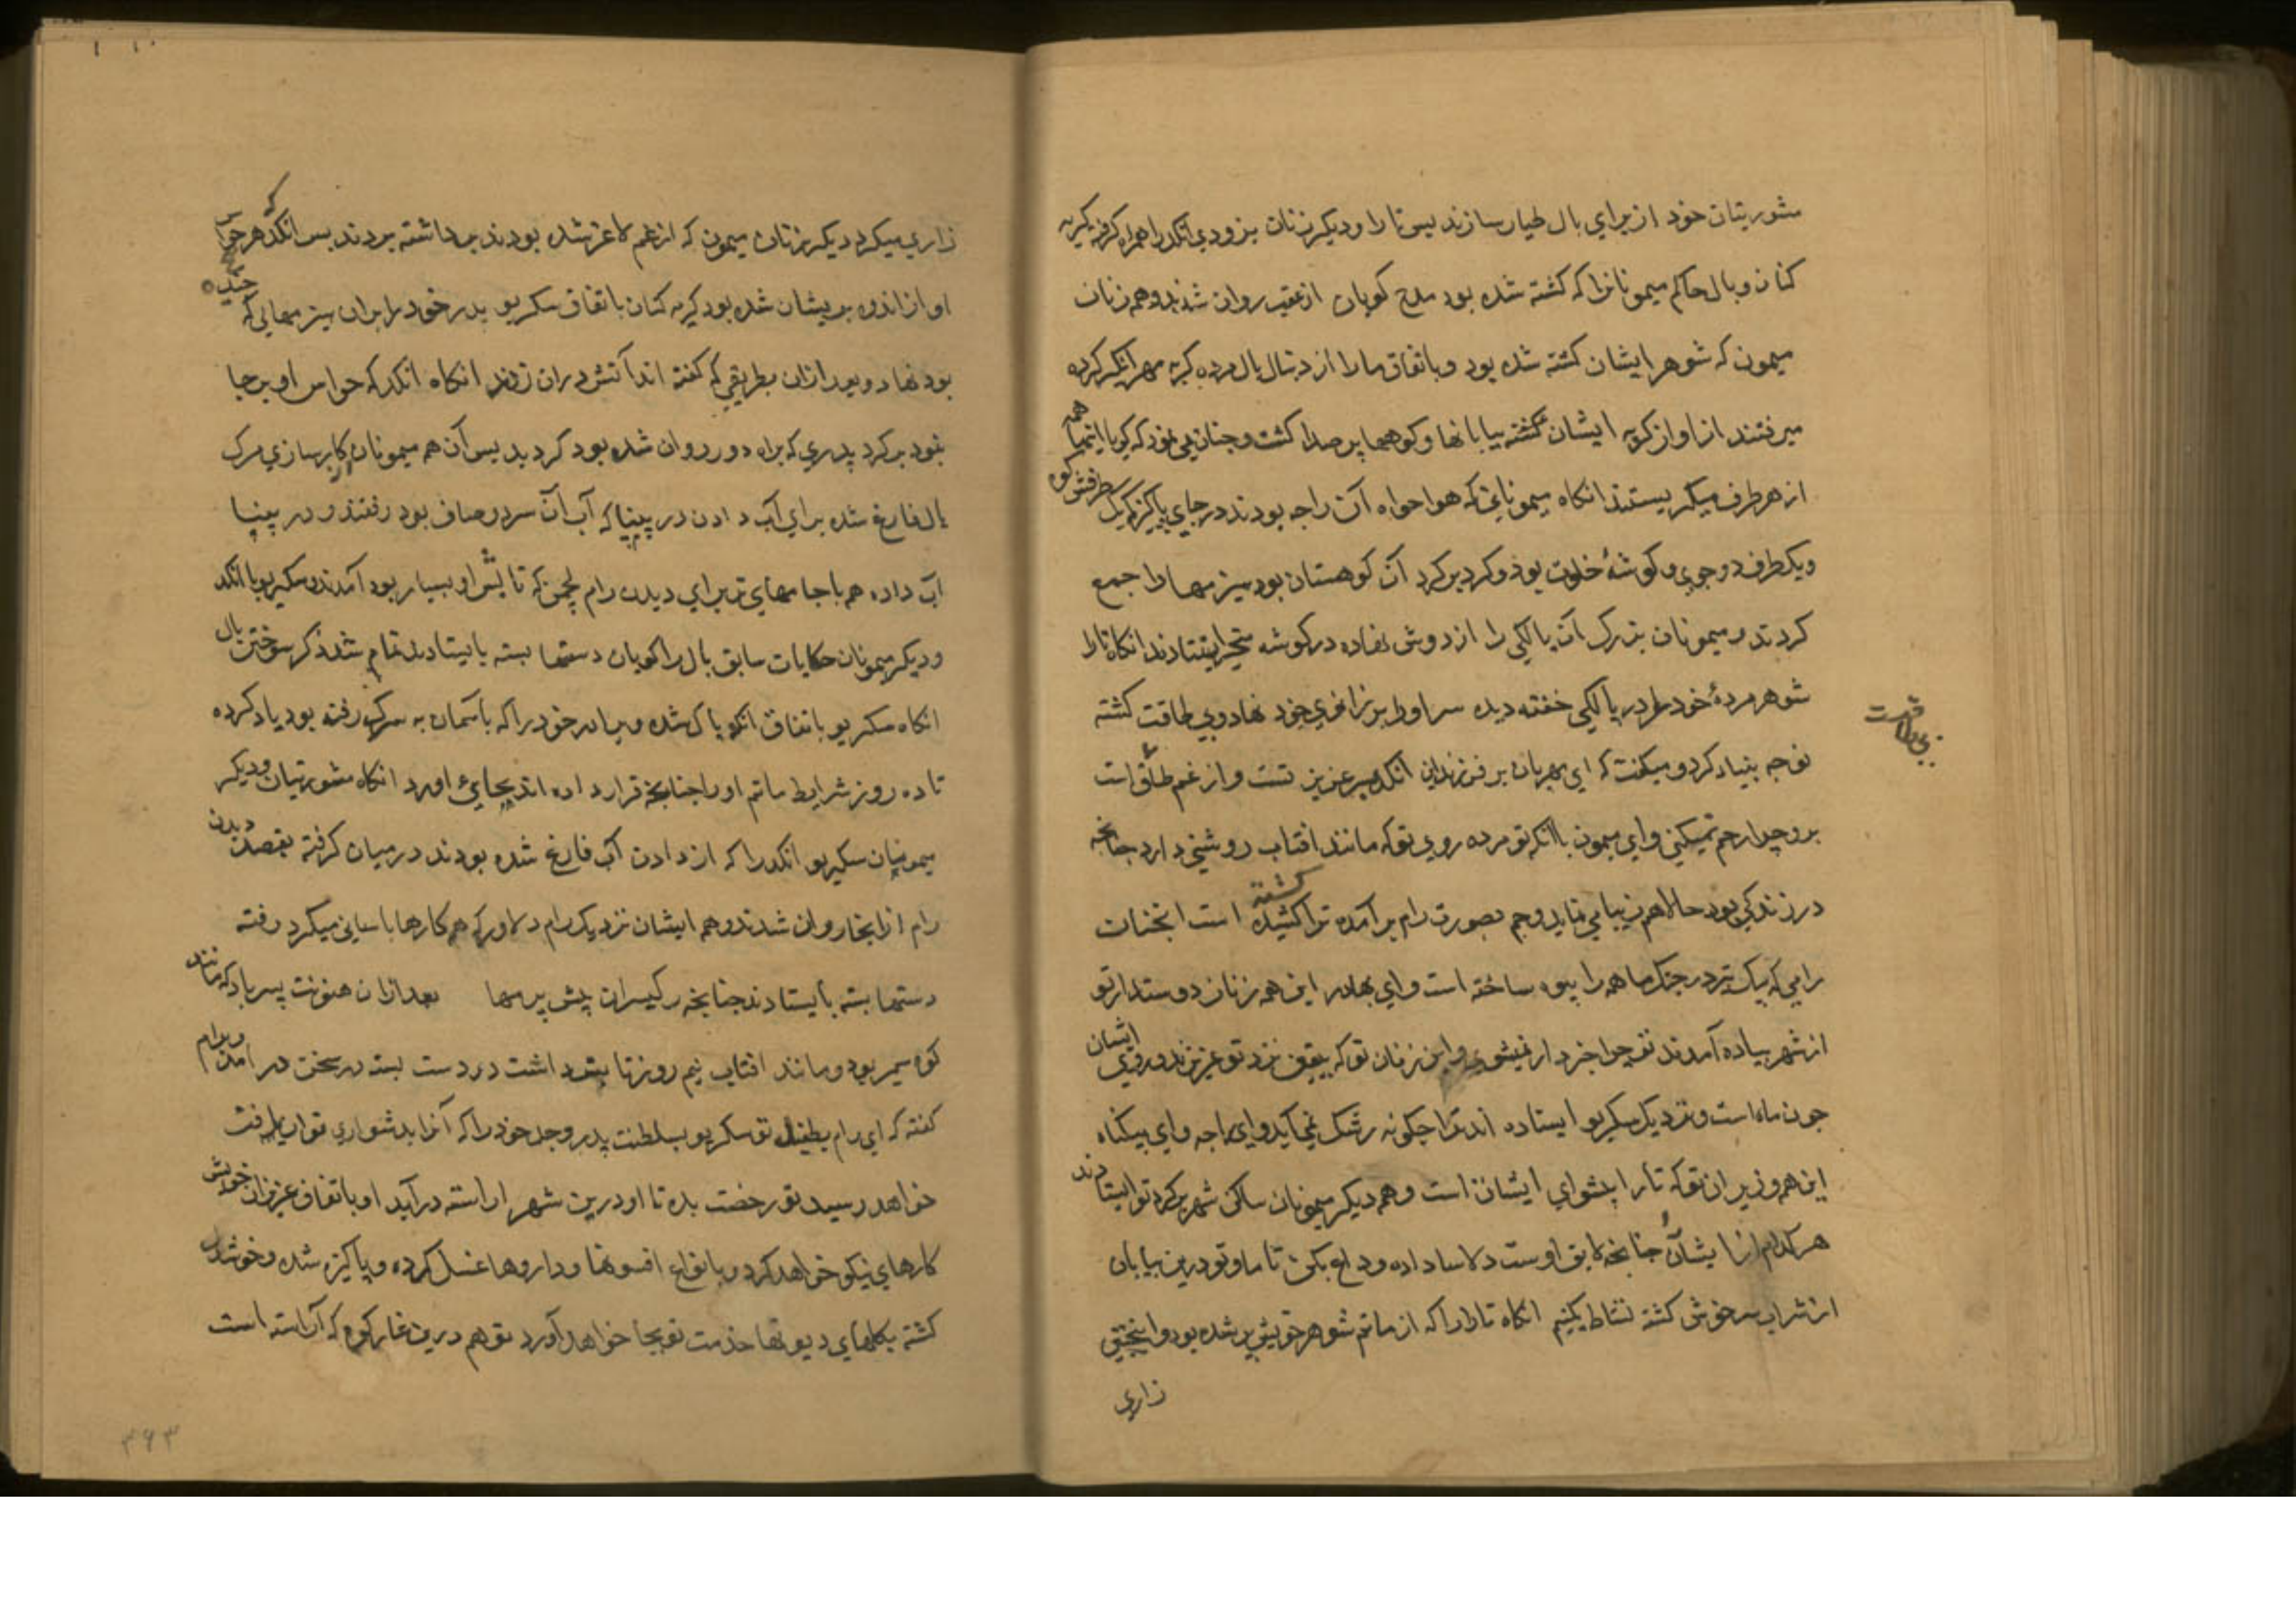 مشورتیان خود از برای بال طیار سازند پس تارا و دیگر زنان بزودی انگد را همراه کرفته کریه
کنان و بال حاکم میمونانرا که کشته شده بود مدح کویان از عقب روان شدند و همه زنان
میمون که شوهر ایشان کشته شده بود و باتفاق مارا از دنبال بال مرده کریه
میرفتند از اواز کریه ایشان کشته بیابانها و کوهها پر صدا کشت و چنان می نمود که کویا اینهمه
از هر طرف میکریستند انکاه میمونانی که هواخواه آن راجه بودند در جای پاکیزه که یک طرفش کوه
و یکطرف دو جوی و کوشهٔ خلوت بود و کرد برکرد آن کوهستان بود هیزمها را جمع
کردند و میمونان بزرک آن پالکی را از دوش نهاده در کوشه متحیر ایستادند انکاه تارا
شوهر مردهٔ خود را در پالکی خفته دیده سر او را بر زانوی خود نهاد و بی طاقت کشته
بی طاقت
نوحه بنیاد کرد و میکفت که ای مهربان بر فرزندان انکد پسر عزیز تست و از غم طاق است
برو چرا رحم نمیکنی و ای میمون با آنکه تو مرده روی تو که مانند افتاب روشنی دارد چنانچه
در زندکی بود حالا هم زیبا می نماید و جم بصورت رام برآمده ترا کشته کشیده است اینچنان
رامی که بیک تیر در جنک ما همه را بیوه ساخته است و ای بهادر این همه زنان دوستدار تو
از شهر پیاده آمدند تو چرا خبردار نمیشوی و این زنان تو که بیقین نزد تو عزیزند و روی ایشان
چون ماه است و نزدیک سکریو ایستاده اند ترا چکونه رشک نمی آید و ای راجه و ای بیکناه
این همه وزیران تو که تارا پیشوای ایشان است و هم دیکر میمونان ساکن شهر کرد تو ایستادند
هر کدام از ایشان را چنانچه لایق اوست دلاسا داده وداع بکن تا ما و تو درین بیابان
از شراب سرخوش کشته نشاط بکنیم انکاه تارا را که از ماتم شوهر خویش پر شده بود و اینچنین
زاری
زاری میکرد دیکر زنان میمون که از غم لاغر شده بودند برداشته بردند پس انکد که هر چهار
او از اندوه پریشان شده بود کریه کنان باتفاق سکریو پدر خود را بران هیزمهایی که چیده
بود نهاد و بعد ازان بطریقی که کفته اند آتش دران زدند انکاه انکد که حواس او برجا
نبود بر کرد پدری که براه دور روان شده بود کردید پس آن همه میمونان از کارسازی مرک
بال فارغ شده برای آب دادن در پنپا که آب آن سرد و صاف بود رفتند و در پنپا
آب داده همه با جامهای تر برای دیدن رام لچمن که تابش او بسیار بود آمدند و سکریو با انکد
و دیکر میمونان حکایات سابق بال را کویان دستها بسته بایستادند تمام شد ذکر سوختن بال
انکاه سکریو باتفاق انکد پاک شده و برادر خود را که باسمان به مرک رفته بود یاد کرده
تا ده روز شرایط ماتم او را چنانچه قرار داده اند بجای اورد انکاه مشورتیان و دیکر
میمونیان سکریو انکد را که از دادن آب فارغ شده بودند در میان کرفته بقصد دیدن
رام از انجا روان شدند و همه ایشان نزدیک رام دلاور که همه کارها باسانی میکرد رفته
دستها بسته بایستادند چنانچه رکیسران پیش برمها بعد ازان هنونت پسر باد که مانند
کوه سمیر بود و مانند افتاب نیم روز تابش داشت در دست بسته در سخن در امد و برام
کفته که ای رام بطفیل تو سکریو بسلطنت پدر و جد خود را که آنرا بدشواری توان یافت
خواهد رسید تو رخصت بده تا او درین شهر اراسته درآید او باتفاق عزیزان خویش
کارهای نیکو خواهد کرد و بانواع افسونها و داروها غسل کرده و پاکیزه شده و خوشدل
کشته بکلهای دیوتها خدمت تو بجا خواهد آورد تو هم درین غار کوه که آراسته است
۳۶۳